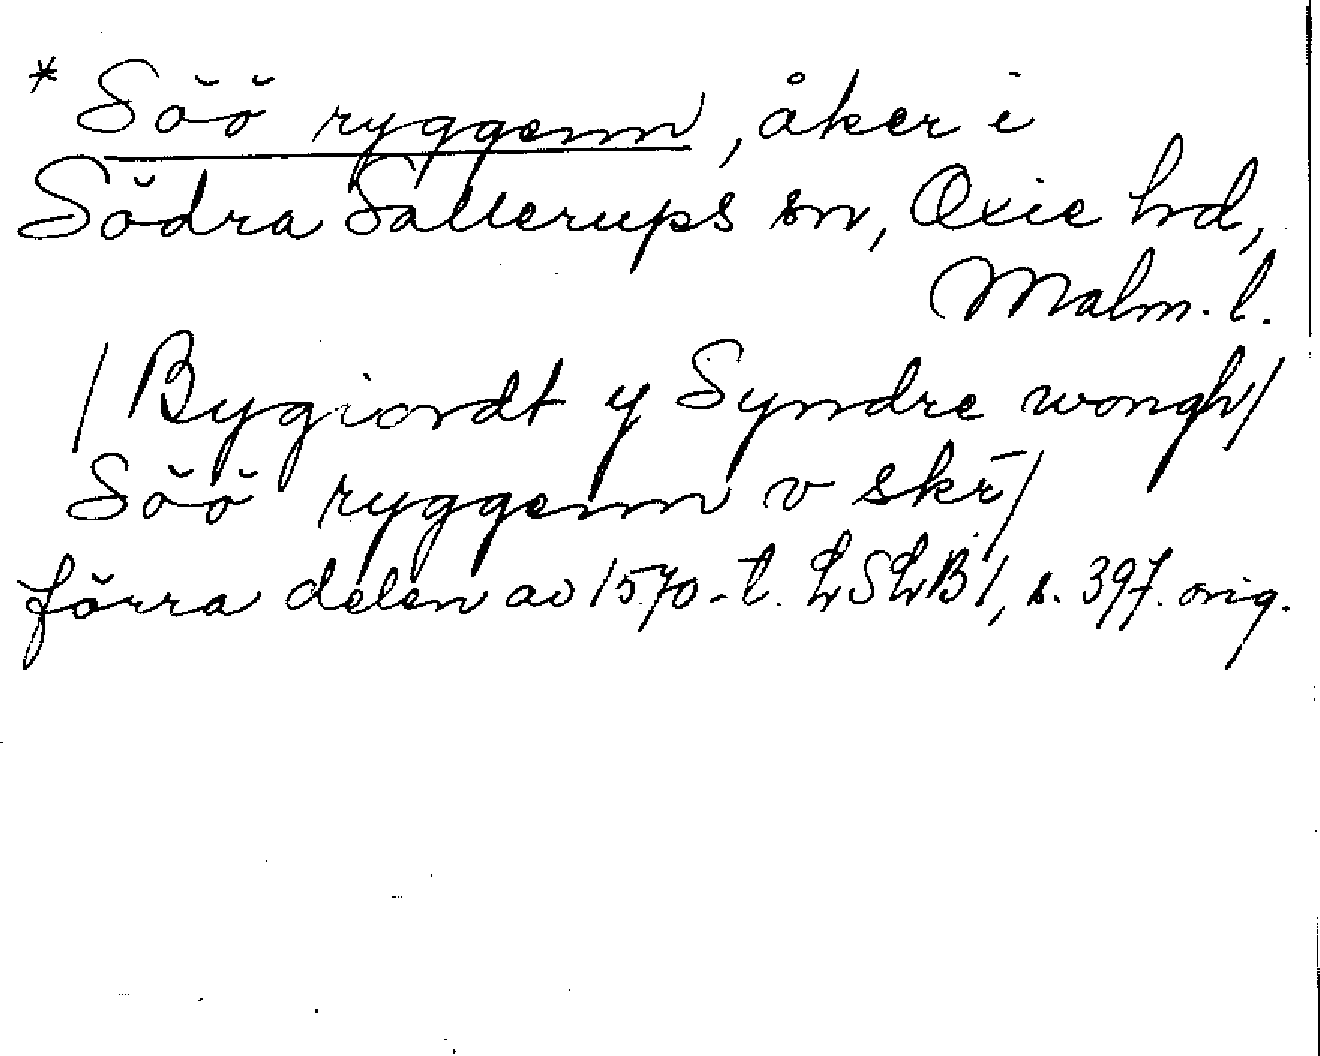 * Söö ryggenn, åker i
Södra Sallerups sn, Oxie hd,
Malm. l.
/Bygiordt y Syndre wongh/
Söö ryggenn v skr̄/
förra delen av 1570-t. LSLB1, s. 397. orig.